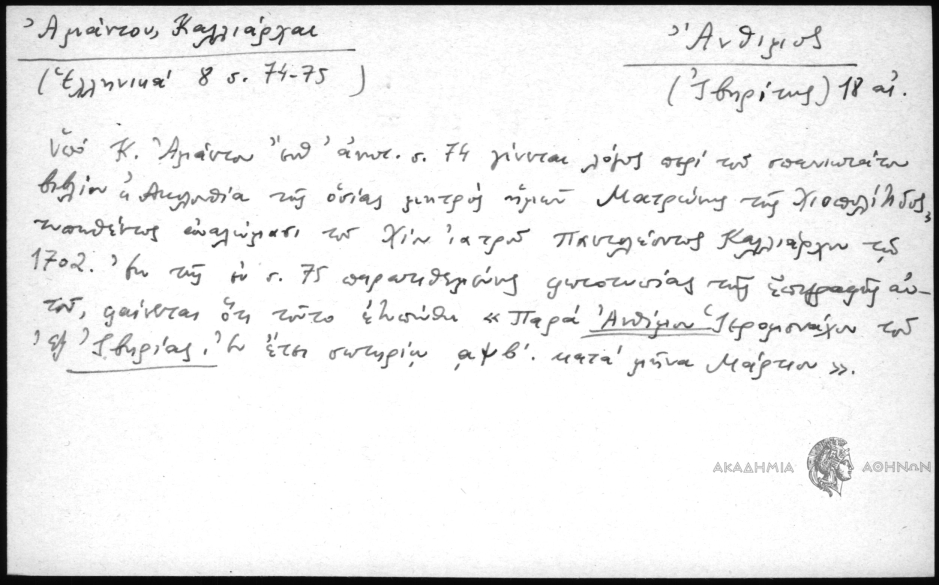 Ἀμάντου, Καλλιάρχαι
(Ἑλληνικά 8 σ. 74-75)
Ἄνθιμος
(Ἰβηρίτης) 18 αἰ.
Ὑπό Κ. Ἀμάντου ἀνωτ. σ. 74 γίνεται λόγος περί τοῦ σπανιωτάτου
βιβλίου Ἀκολουθία τῆς ὁσίας μητρός ἡμῶν Ματρώνης τῆς Χιοπολίτιδος,
τυπωθέντος ἀναλώμασι τοῦ Χίου ἰατροῦ Παντολέοντος Καλλιάρχου τῷ
1702. Ἐκ τῆς ἐν σ. 75 παρατιθεμένης φωτοτυπίας τῆς ἐπιγραφῆς αὐ-
τοῦ, φαίνεται ὅτι τοῦτο ἐτυπώθη «Παρά Ἀνθίμου Ἱερομονάχου τοῦ
ἐξ Ἰβηρίας. Ἐν ἔτει σωτηρίῳ ͵αψβ΄. κατά μῆνα Μάρτιον».
ΑΚΑΔΗΜΙΑ ΑΘΗΝΩΝ